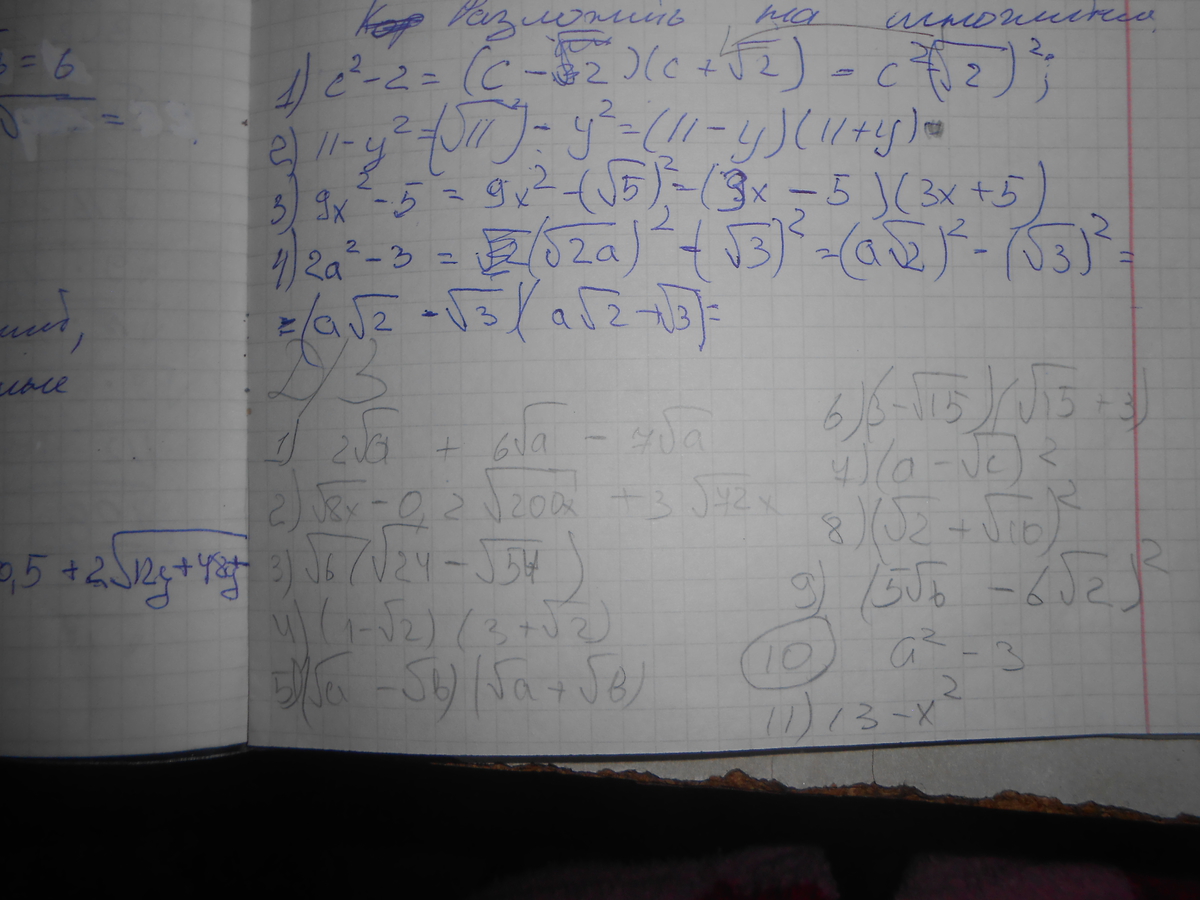 = 6
Разложить на множители
1) c² - 2 = (c - √2)(c + √2) = c² - (√2)²;
2) 11 - y² = (√11)² - y² = (11 - y)(11 + y)
3) 9x² - 5 = 9x² - (√5)² = (3x - 5)(3x + 5)
4) 2a² - 3 = (√2a)² - (√3)² = (a√2)² - (√3)² =
= (a√2 - √3)(a√2 + √3) =
0,5 + 2√12y + 48y
Д/З
1) 2√a + 6√a - 7√a
2) √8x - 0,2 √200x + 3 √72x
3) √6 (√24 - √54)
4) (1 - √2) (3 + √2)
5) (√a - √b) (√a + √b)
6) (3 - √15) (√15 + 3)
7) (a - √c)²
8) (√2 + √10)²
9) (5√b - 6√2)²
10 a² - 3
11) 13 - x²